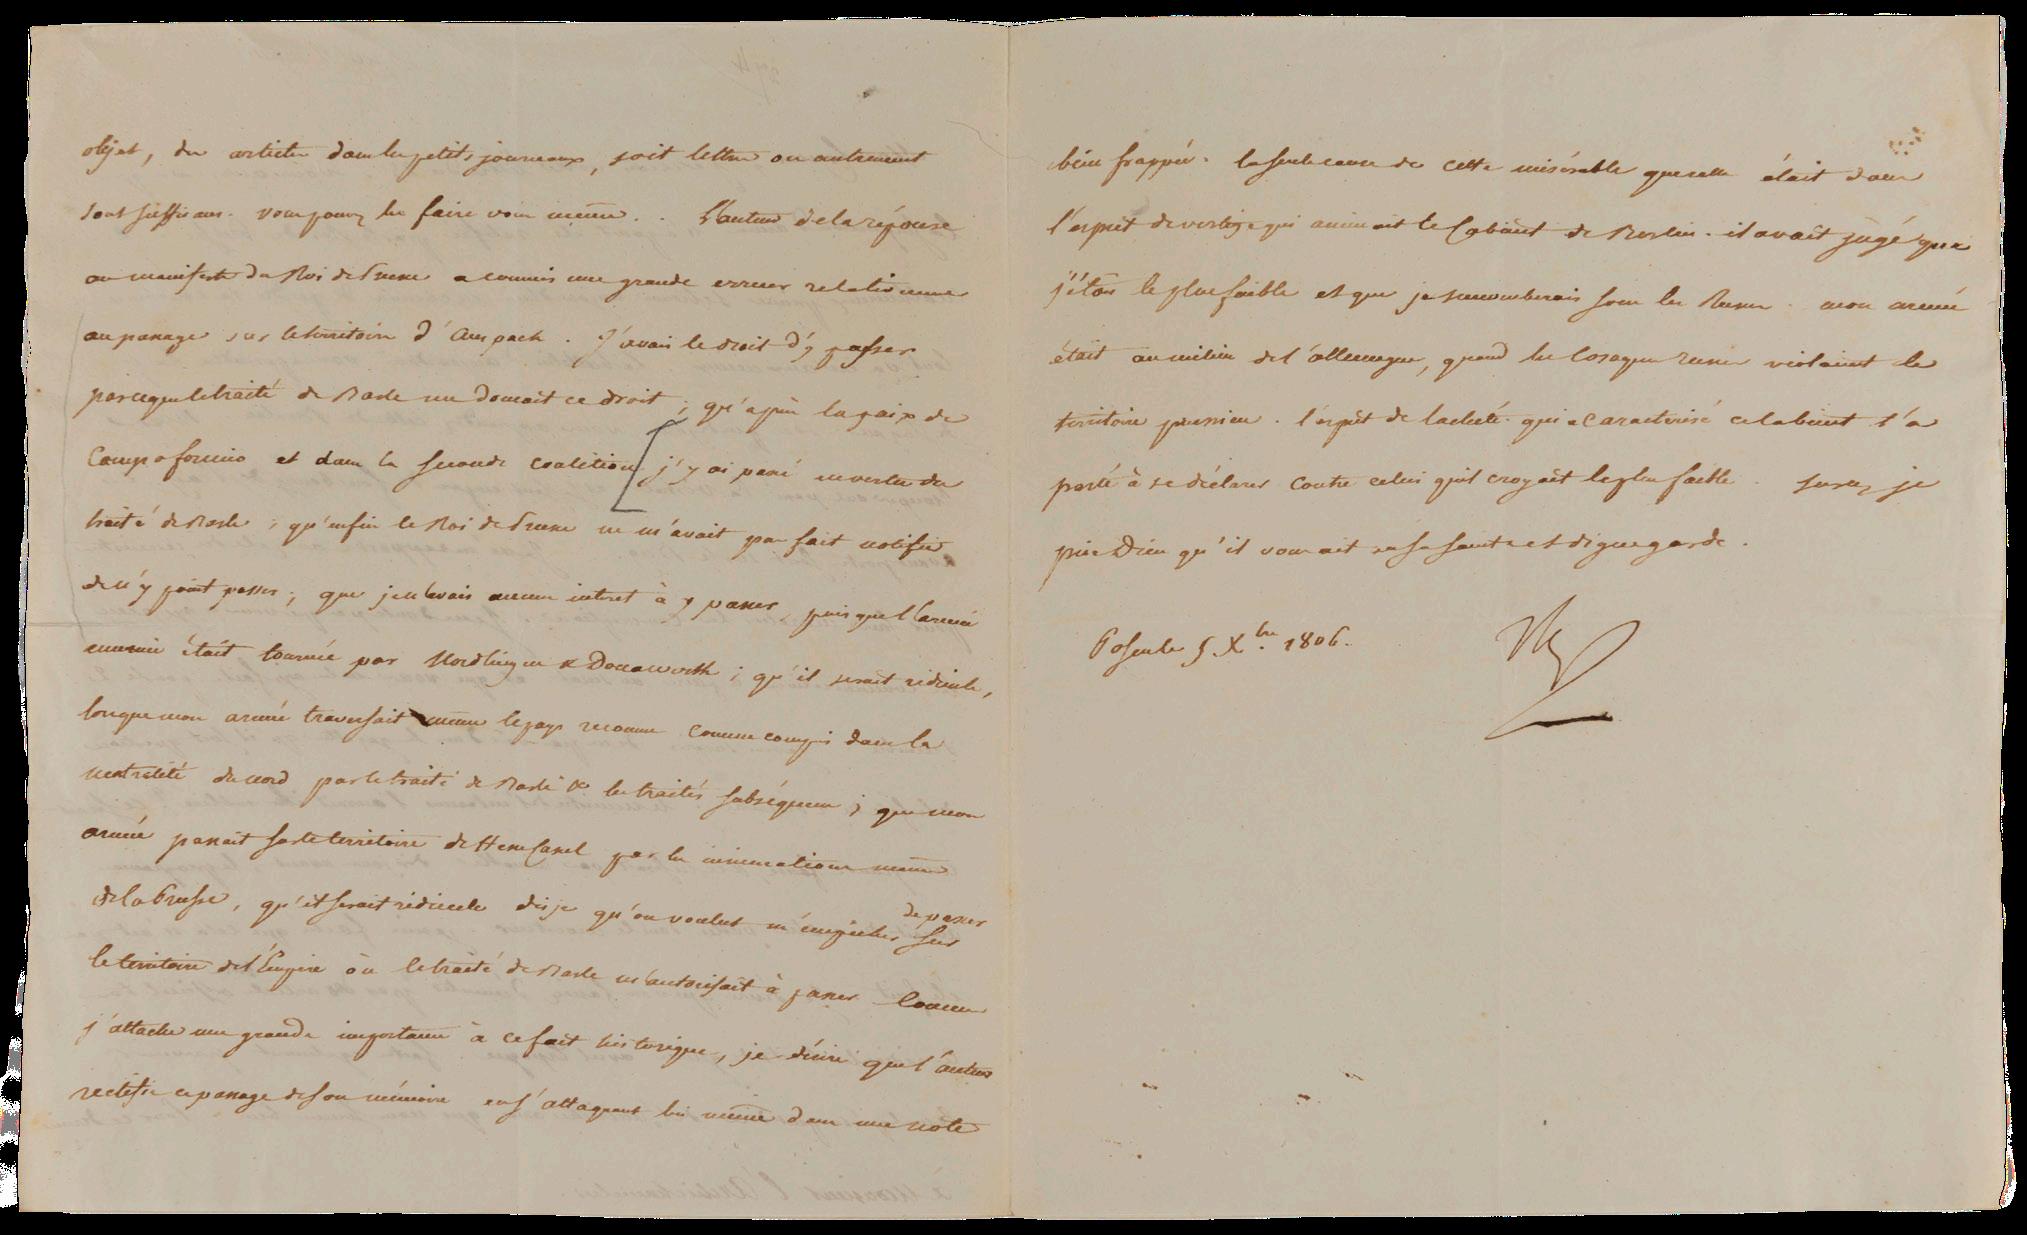 objet, des articles dans les petits journaux, soit lettres ou autrement
sont suffisans. vous pouvez les faire vous même. . L'auteur de la réponse
au manifeste du Roi de Prusse a commis une grande erreur relativement
au passage sur le territoire d'Anspach. J'avais le droit d'y passer
parceque le traité de Basle me donnait ce droit; qu'après la paix de
Campoformio et dans la seconde coalition j'y ai passé en vertu du
traité de Basle; qu'enfin le Roi de Prusse ne m'avait pas fait notifier
de n'y point passer; que je n'avais aucun interet à y passer, puisque l'armée
ennemie était tournée par Nordlingen & Donawerth; qu'il serait ridicule,
lorsque mon armée traversait même le pays reconnu comme compris dans la
neutralité du nord par le traité de Basle & les traités subséquens; que mon
armée passait sur le territoire de Hesse Cassel par les insinuations même
de la Prusse, qu'il serait ridicule dis je qu'on voulut m'empêcher de passer sur
le territoire de l'Empire où le traité de Basle m'autorisait à passer. Comme
j'attache une grande importance à ce fait historique, je désire que l'auteur
rectifie ce passage de son mémoire en s'attaquant lui même dans une note
bien frappée. la seule cause de cette misérable querelle était dans
l'esprit de vertige qui animait le Cabinet de Berlin. il avait jugé que
j'étais le plus faible et que je succomberais sous les Russes. mon armée
était au milieu de l'allemagne, quand les Cosaques russes violaient le
territoire prussien. l'esprit de lacheté qui a caractérisé ce cabinet l'a
porté à se déclarer contre celui qu'il croyait le plus faible. sur ce, je
prie Dieu qu'il vous ait en sa sainte et digne garde.
Posen le 5 Xbre 1806.
Np
à Monsieur l'Archichancelier